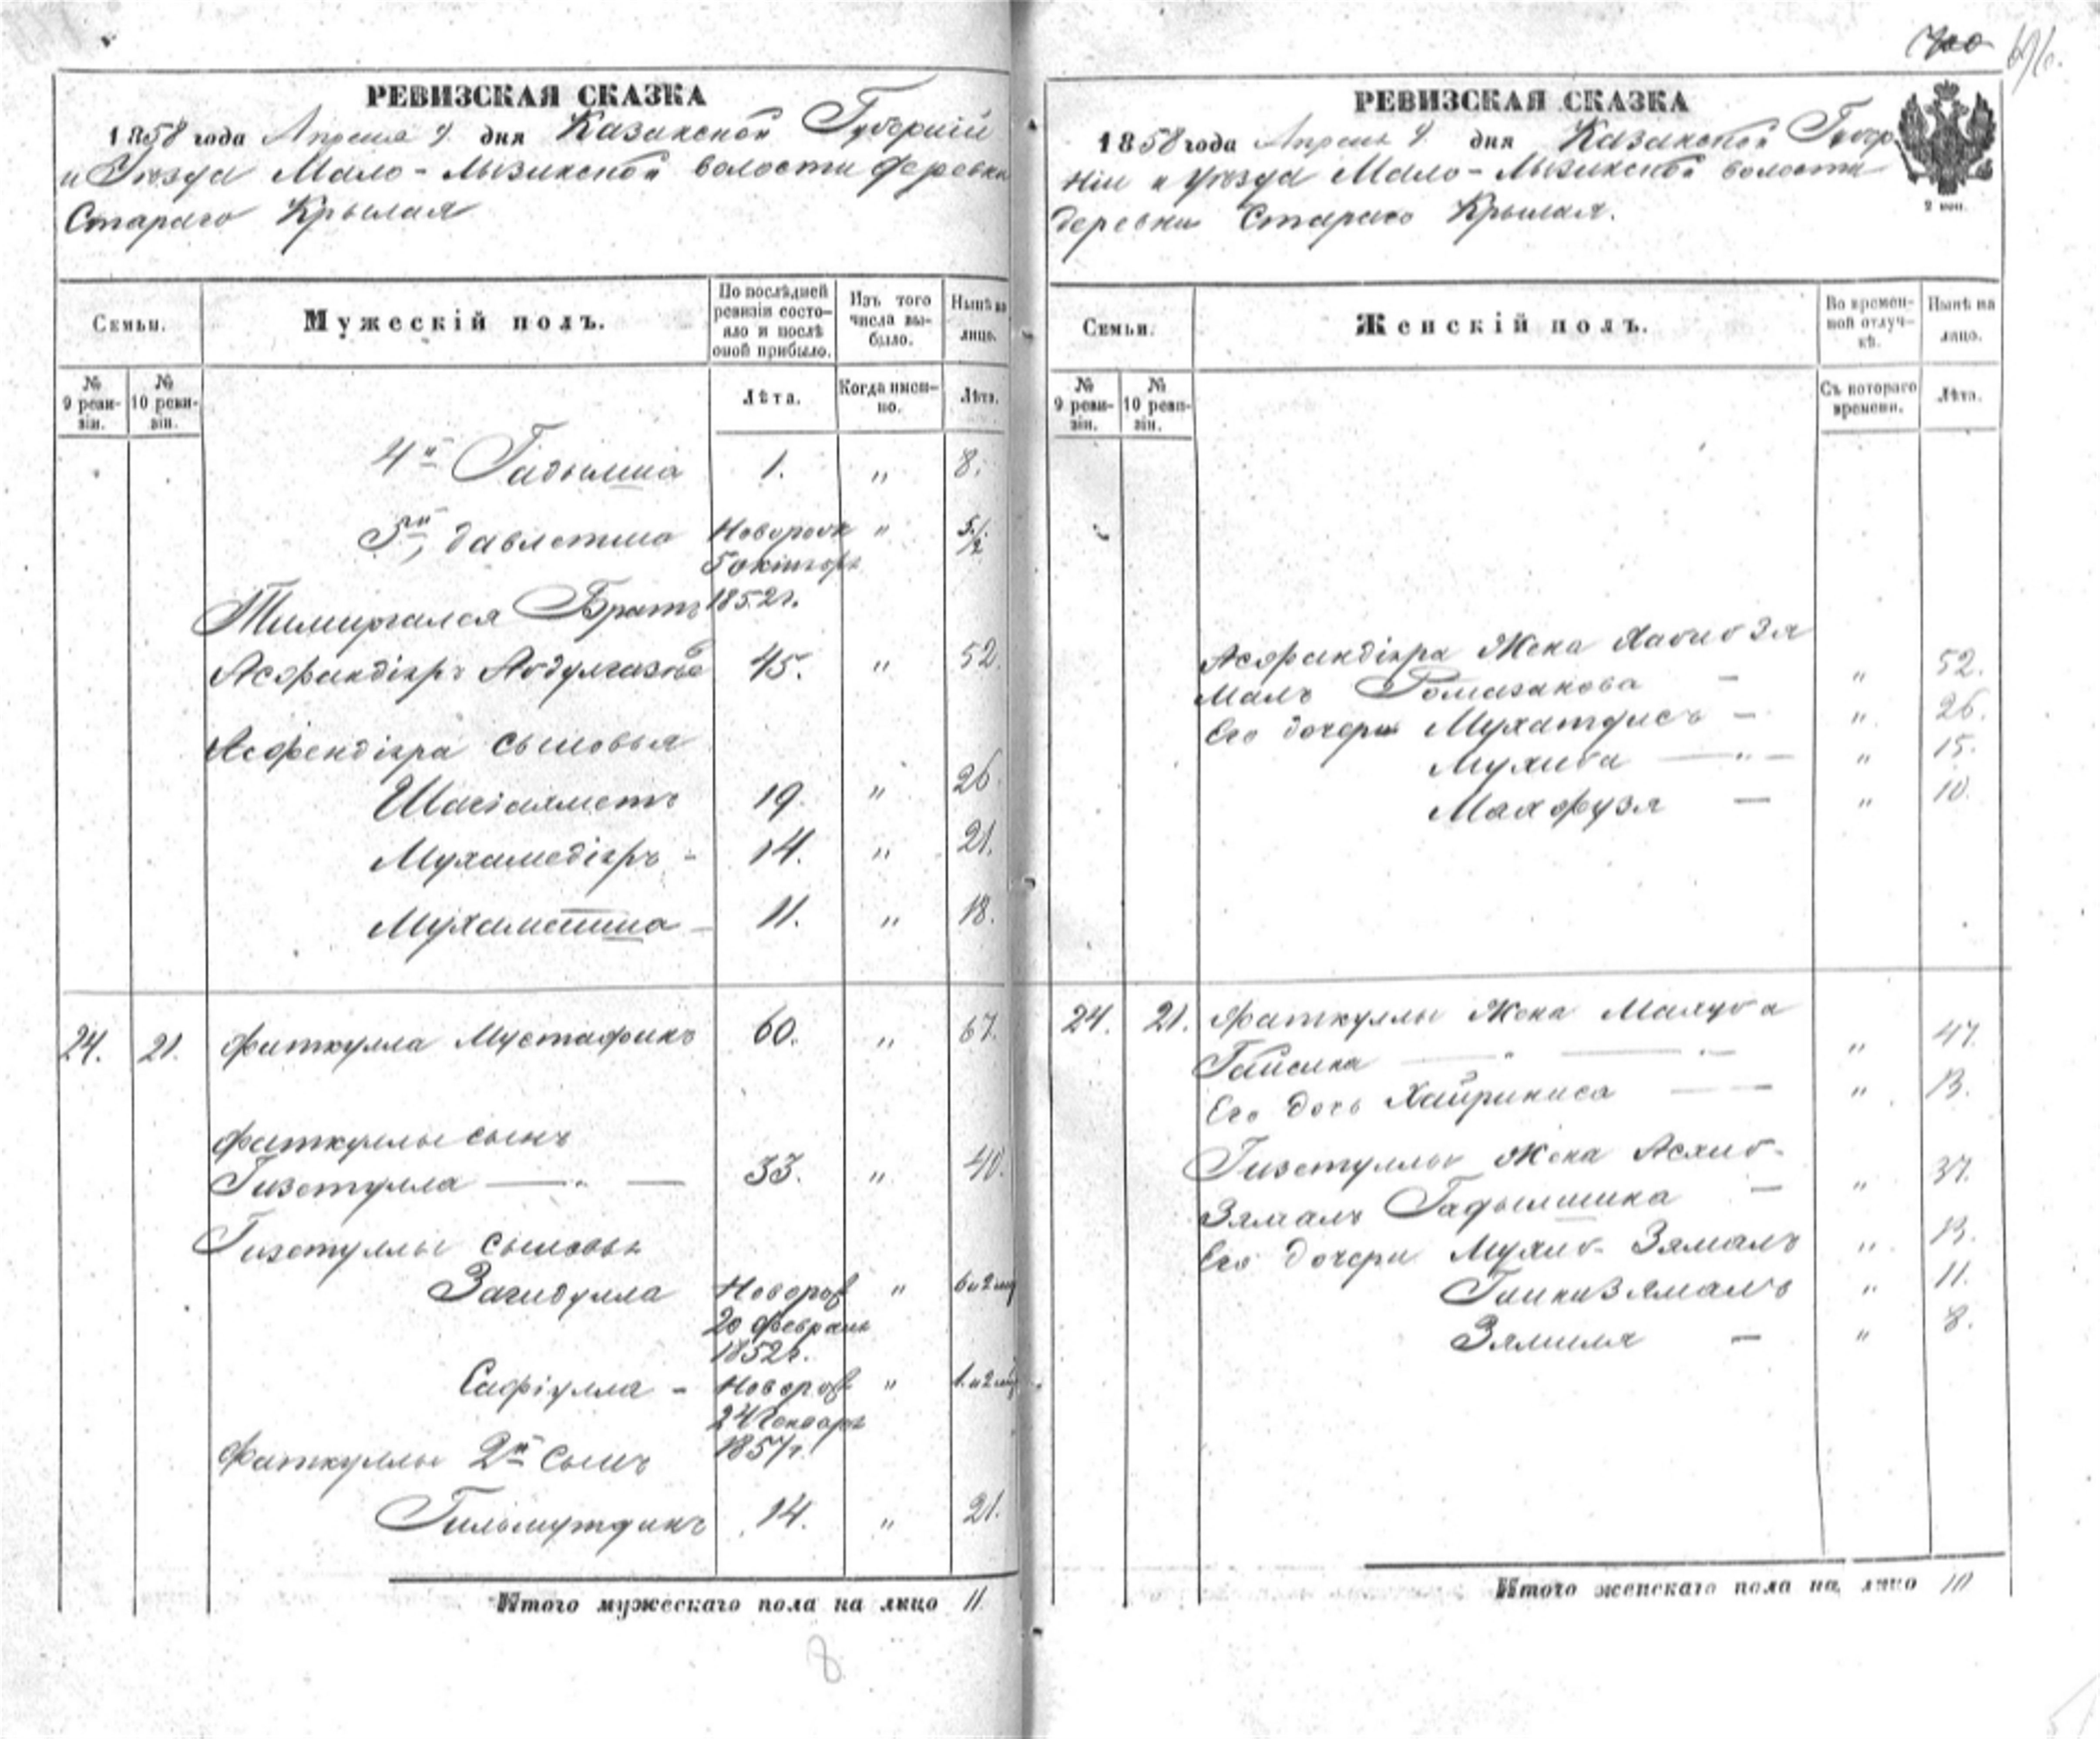 РЕВИЗСКАЯ СКАЗКА
1858 года Апреля 4. дня Казанской Губернiи
и Уезда Мало-Мызинской волости деревни
Стараго Крылая
Семьи.
Мужескiй полъ.
По послѣдней ревизiи состо-
яло и послѣ
оной прибыло.
Изъ того
числа вы-
было.
Нынѣ на
лицо.
№
9 реви-
зiи.
№
10 реви-
зiи.
Лѣта.
Когда имен-
но.
Лѣта.
4й Гадылша 1. " 8.
5й Давлетша Новорож " 5 1/2
5 октябр
1852 г.
Тимиргалея Братъ
Асфандiяръ Абдулгазыев 45. " 52.
Асфендiяра сыновья
Шагiахметъ 19. " 26.
Мухамедiяръ - 14. " 21.
Мухаметша - 11. " 18.
24. 21. Фаткулла Мустафинъ 60. " 67.
Фаткуллы сынъ
Гизетулла 33. " 40.
Гизетуллы сыновья
Загидулла Новорож " 6 и 2 мц
20 февраля
1852 г.
Сафiулла - Новорож " 1 и 2 мц
24 Генваря
1857 г.
Фаткуллы 2й сынъ
Гильмутдинъ 14. " 21.
Итого мужескаго пола на лицо 11.
8
700
РЕВИЗСКАЯ СКАЗКА
1858 года Апреля 4. дня Казанской Губер
нiи и Уезда Мало-Мызинской волости
деревни Стараго Крылая.
2 коп.
Семьи.
Женскiй полъ.
Во времен-
ной отлуч-
кѣ.
Нынѣ на
лицо.
№
9 реви-
зiи.
№
10 реви-
зiи.
Съ котораго
времени.
Лѣта.
Асфандiяра Жена Хабибзя
малъ Рамазанова - " 52.
Его дочери Мухатдисъ - " 26.
Мухиба " 15.
Махфузя - " 10.
24. 21. Фаткуллы Жена Махуба
Гайсина " 47.
Его дочь Хайриниса " 13.
Гизетуллы Жена Асхиб-
Зямалъ Гадылшина - " 37.
Его дочери Мухиб-Зямалъ " 13.
Гайнизямалъ " 11.
Зямиля - " 8.
Итого женскаго пола на лицо 10